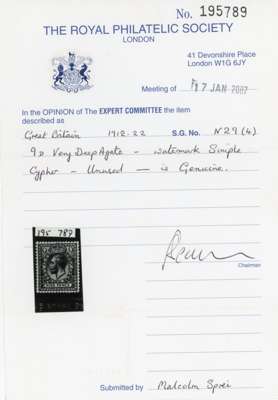 No. 195789
THE ROYAL PHILATELIC SOCIETY
LONDON
41 Devonshire Place
London W1G 6JY
Meeting of 17 JAN 2007
In the OPINION of The EXPERT COMMITTEE the item
described as
Great Britain 1912-22 S.G. No. N29(4)
9d Very Deep Agate - watermark Simple
Cypher - Unused - is Genuine.
Chairman
195 789
NINE PENCE
Submitted by Malcolm Sprei